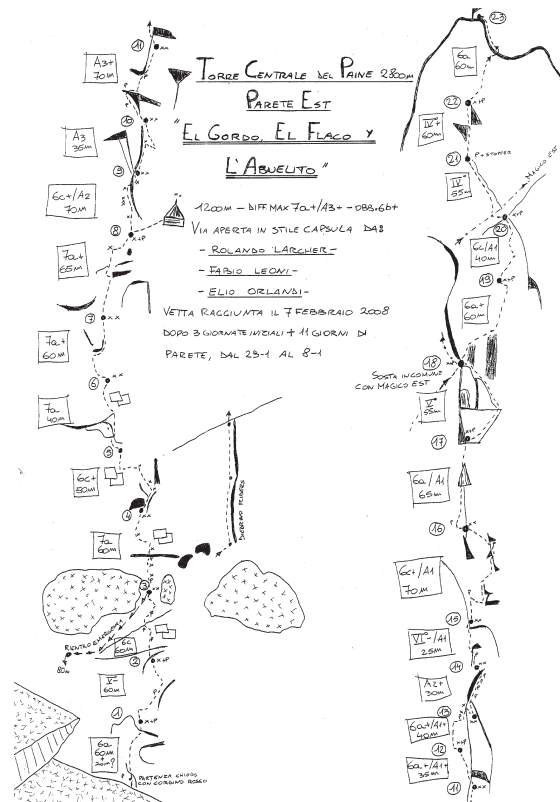 TORRE CENTRALE DEL PAINE 2800m
PARETE EST
"EL GORDO, EL FLACO Y
L'ABUELITO"
1200m - DIFF MAX 7a+/A3+ - OBB. 6b+
VIA APERTA IN STILE CAPSULA DA:
- ROLANDO LARCHER -
- FABIO LEONI -
- ELIO ORLANDI -
VETTA RAGGIUNTA IL 7 FEBBRAIO 2008
DOPO 3 GIORNATE INIZIALI + 11 GIORNI DI
PARETE, DAL 29-1 AL 8-1
11
xx
A3+
70m
10
x+P
A3
35m
9
xx
6c+/A2
70m
8
x+P
7a+
65m
7
xx
7a+
60m
6
xx
7a
40m
5
xx
6c+
50m
4
xx
7a
60m
3
xx
RIENTRO EMERGENZA
80m
6c
60m
2
x+P
V-
60m
1
x+P
6a
60m
+20m?
PARTENZA CHIODO
CON CORDINO ROSSO
DIEDRO
23
6a
60m
22
x+P
IV+
60m
21
P+STOPPER
IV
55m
MAGICO EST
20
x+P
6c/A1
40m
19
xx
6a+
60m
18
xx
SOSTA IN COMUNE
CON MAGICO EST
V+
55m
17
x+P
6a/A1
65m
16
xx
6c+/A1
70m
15
xx
VI-/A1
25m
14
xx
A2+
30m
13
xx
6a+/A1+
40m
12
x+P
6a+/A1+
35m
11
xx